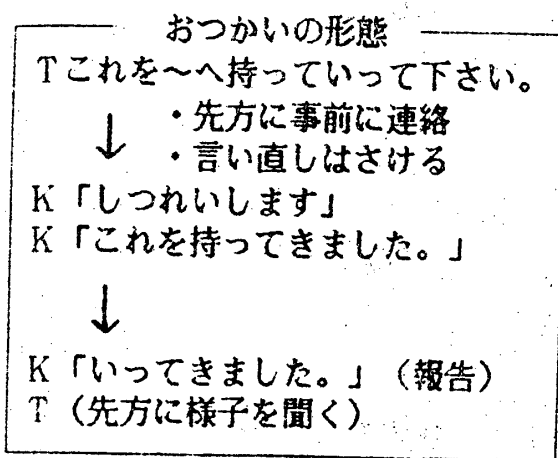 おつかいの形態
Tこれを～へ持っていって下さい。
・先方に事前に連絡
↓
・言い直しはさける
K「しつれいします」
K「これを持ってきました。」
↓
K「いってきました。」（報告）
T（先方に様子を聞く）